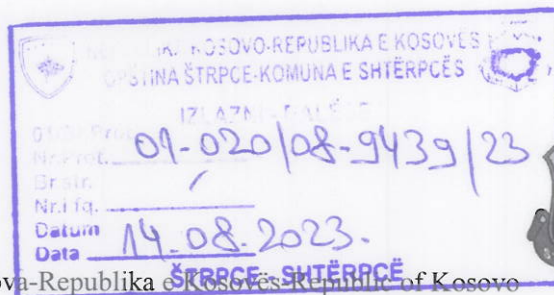 KOSOVO-REPUBLIKA E KOSOVËS
OPŠTINA ŠTRPCE-KOMUNA E SHTËRPCËS
IZLAZNI-DALËSE
Nr.Prot. 01-020/08-9439/23
Br.str. /
Nr.i fq.
Datum
Data 14.08.2023.
ŠTRPCE-SHTËRPCË
va-Republika e Kosovës-Republic of Kosovo